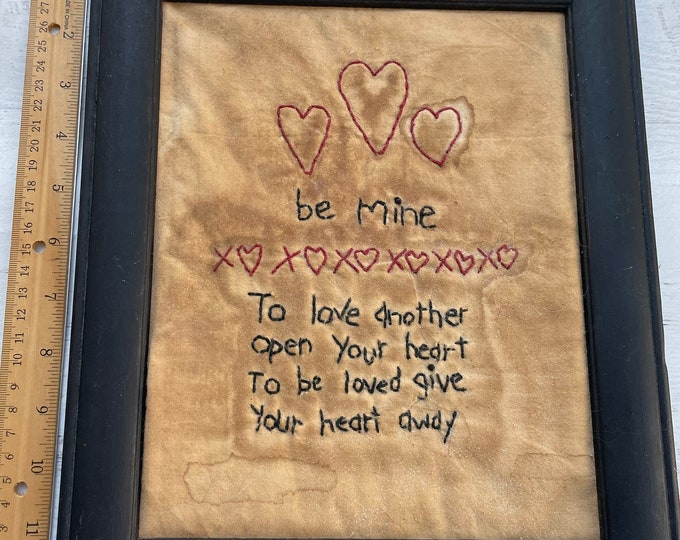 be Mine
XOXOXOXOXOXO
To love another
Open Your heart
To be loved give
Your heart away
MADE IN CHINA
27
26
25
24
23
22
21
20
19
18
17
16
15
14
13
12
11
10
9
8
7
6
5
4
3
2
4
5
6
7
8
9
10
11